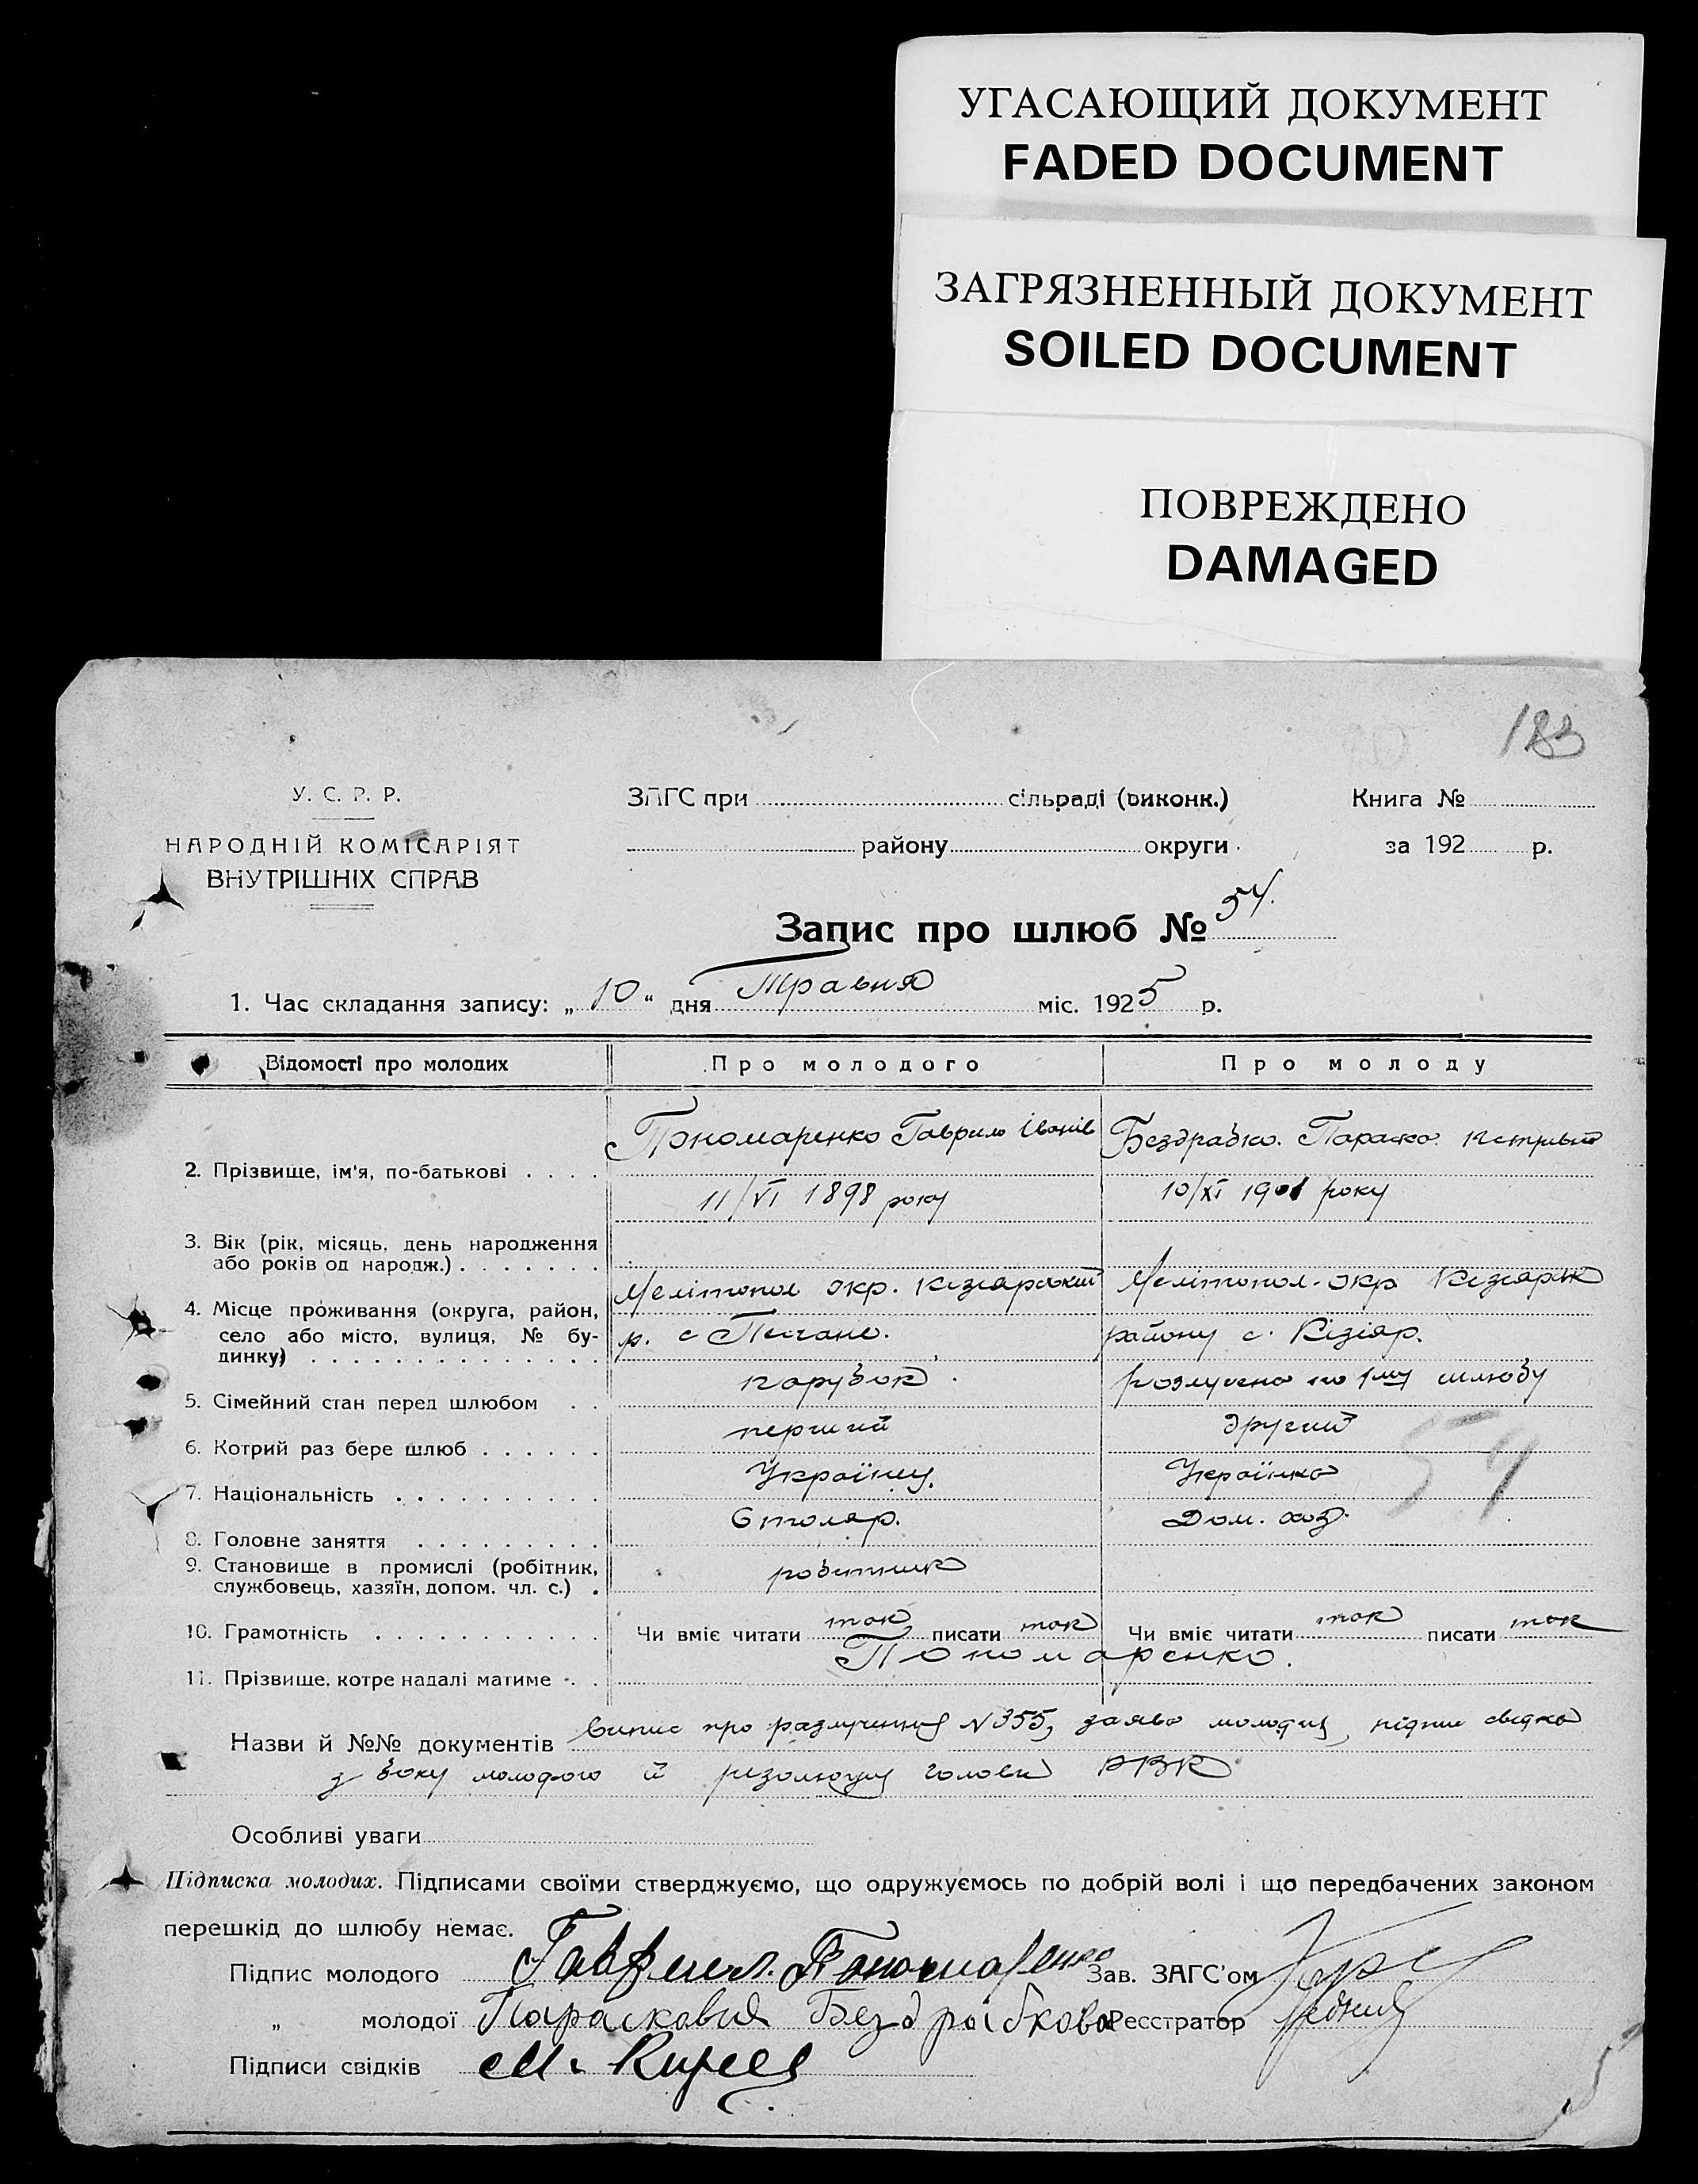 УГАСАЮЩИЙ ДОКУМЕНТ
FADED DOCUMENT
ЗАГРЯЗНЕННЫЙ ДОКУМЕНТ
SOILED DOCUMENT
ПОВРЕЖДЕНО
DAMAGED
183
У. С. Р. Р.
НАРОДНІЙ КОМІСАРІЯТ
ВНУТРІШНІХ СПРАВ
ЗАГС при сільраді (виконк.) Книга №
району округи за 192 р.
Запис про шлюб № 54.
1. Час складання запису: „10“ дня Травня міс. 1925 р.
Відомості про молодих Про молодого Про молоду
2. Прізвище, ім'я, по-батькові Пономаренко Гаврило Іванів Бездрабко Параска
3. Вік (рік, місяць, день народження або років од народж.) 11/VI 1898 року 10/XI 1901 року
4. Місце проживання (округа, район, Мелітопол окр. Кізіярський Мелітопол. окр Кізіярськ
село або місто, вулиця, № бу- р. с Піщане. району с. Кізіяр.
динку)
5. Сімейний стан перед шлюбом парубок. розлучена по 1му шлюбу
6. Котрий раз бере шлюб перший другий
7. Національність Українец. Українка 54
8. Головне заняття Столяр. Дом. хоз.
9. Становище в промислі (робітник, службовець, хазяїн, допом. чл. с.) робитник
10. Грамотність Чи вміє читати так писати так Чи вміє читати так писати так
11. Прізвище, котре надалі матиме Пономаренко.
Назви й №№ документів Випис про разлучення N 355, заява молодих, підпис свідка
з боку молодого й резолюція голови РВК
Особливі уваги
Підписка молодих. Підписами своїми стверджуємо, що одружуємось по добрій волі і що передбачених законом
перешкід до шлюбу немає.
Підпис молодого Гаврил. Пономаренко Зав. ЗАГС'ом
„ молодої Парасковия Бездрабкова Реєстратор
Підписи свідків М.